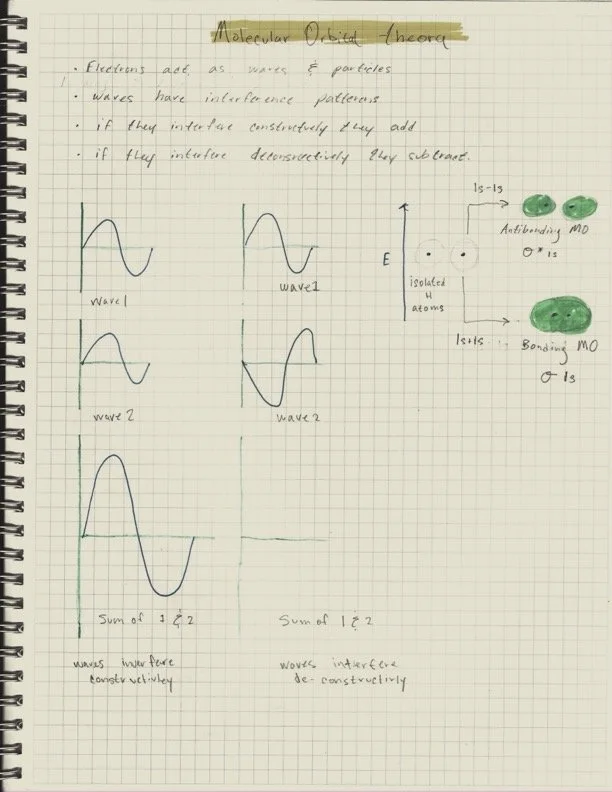 Molecular Orbital theory
· Electrons act as waves & particles
· waves have interference patterns
· if they interfere constructively they add
· if they interfere deconsrectively they subtract.
wave1
wave1
wave 2
wave 2
Sum of 1 & 2
Sum of 1 & 2
waves interfere
constructivley
waves interfere
de-constructivly
E
isolated
H
atoms
1s-1s
Antibonding MO
σ* 1s
1s+1s
Bonding MO
σ 1s